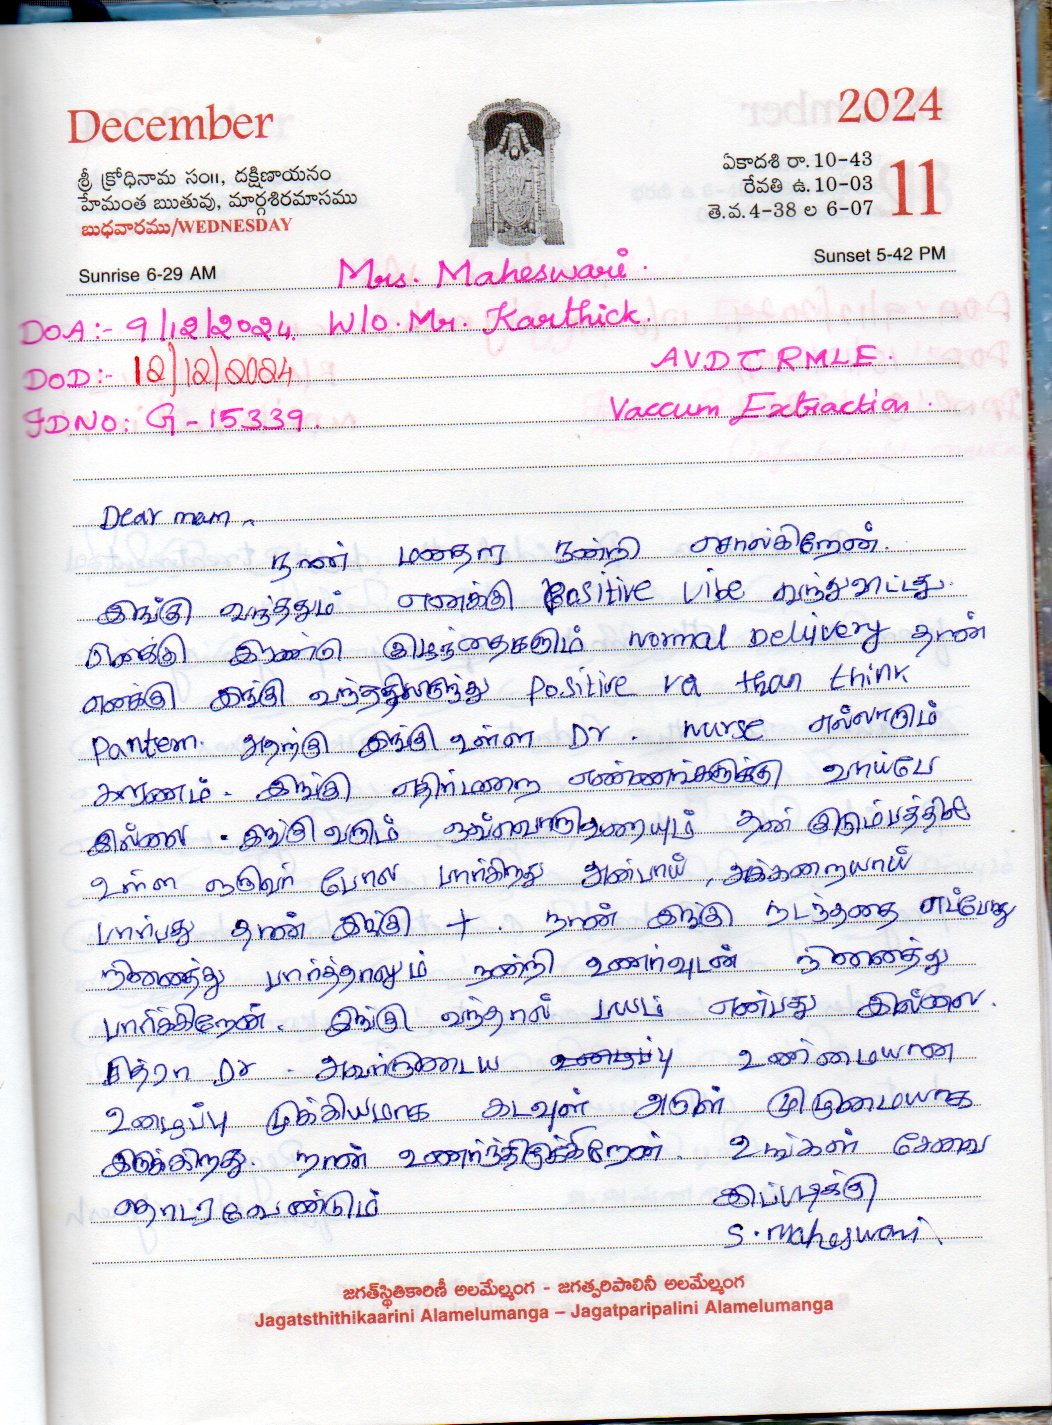 December
2024
శ్రీ క్రోధినామ సం॥, దక్షిణాయనం
హేమంత ఋతువు, మార్గశిరమాసము
బుధవారము/WEDNESDAY
ఏకాదశి రా.10-43
రేవతి ఉ.10-03
తె.వ.4-38 ల 6-07
11
Sunrise 6-29 AM
Sunset 5-42 PM
Mrs. Maheswari.
DOA:- 9/12/2024. W/o. Mr. Karthick.
DOD:- 12/12/2024
AVD C RMLE.
IDNO: G-15339.
Vaccum Extraction.
Dear mam,
நான் மனதார நன்றி சொல்கிறேன்.
இங்கு வந்ததும் எனக்கு Positive vibe வந்துவிட்டது.
எனக்கு இரண்டு குழந்தைகளும் normal Delivery தான்
எனக்கு இங்கு வந்ததிலிருந்து positive ra than think
panten. அதற்கு இங்கு உள்ள Dr. nurse எல்லாரும்
காரணம். இங்கு எதிர்மறை எண்ணங்களுக்கு வாய்பே
இல்லை. இங்கு வரும் ஒவ்வொருவரையும் தன் குடும்பத்தில்
உள்ள ஒருவர் போல பார்கிறது அன்பாய், அக்கறையாய்
பார்பது தான் இங்கு +. நான் இங்கு நடந்ததை எப்போது
நினைத்து பார்த்தாலும் நன்றி உணர்வுடன் நினைத்து
பார்க்கிறேன். இங்கு வந்தால் பயம் என்பது இல்லை.
சித்ரா Dr. அவர்களுடைய உண்மையான
உழைப்பு முக்கியமாக கடவுள் அருள் முழுமையாக
இருக்கிறது. நான் உணர்ந்திருக்கிறேன். உங்கள் சேவை
தொடர வேண்டும்
இப்படிக்கு
S. Maheswari
జగత్‌స్థితికారిణీ అలమేల్మంగ - జగత్పరిపాలినీ అలమేల్మంగ
Jagatsthithikaarini Alamelumanga – Jagatparipalini Alamelumanga